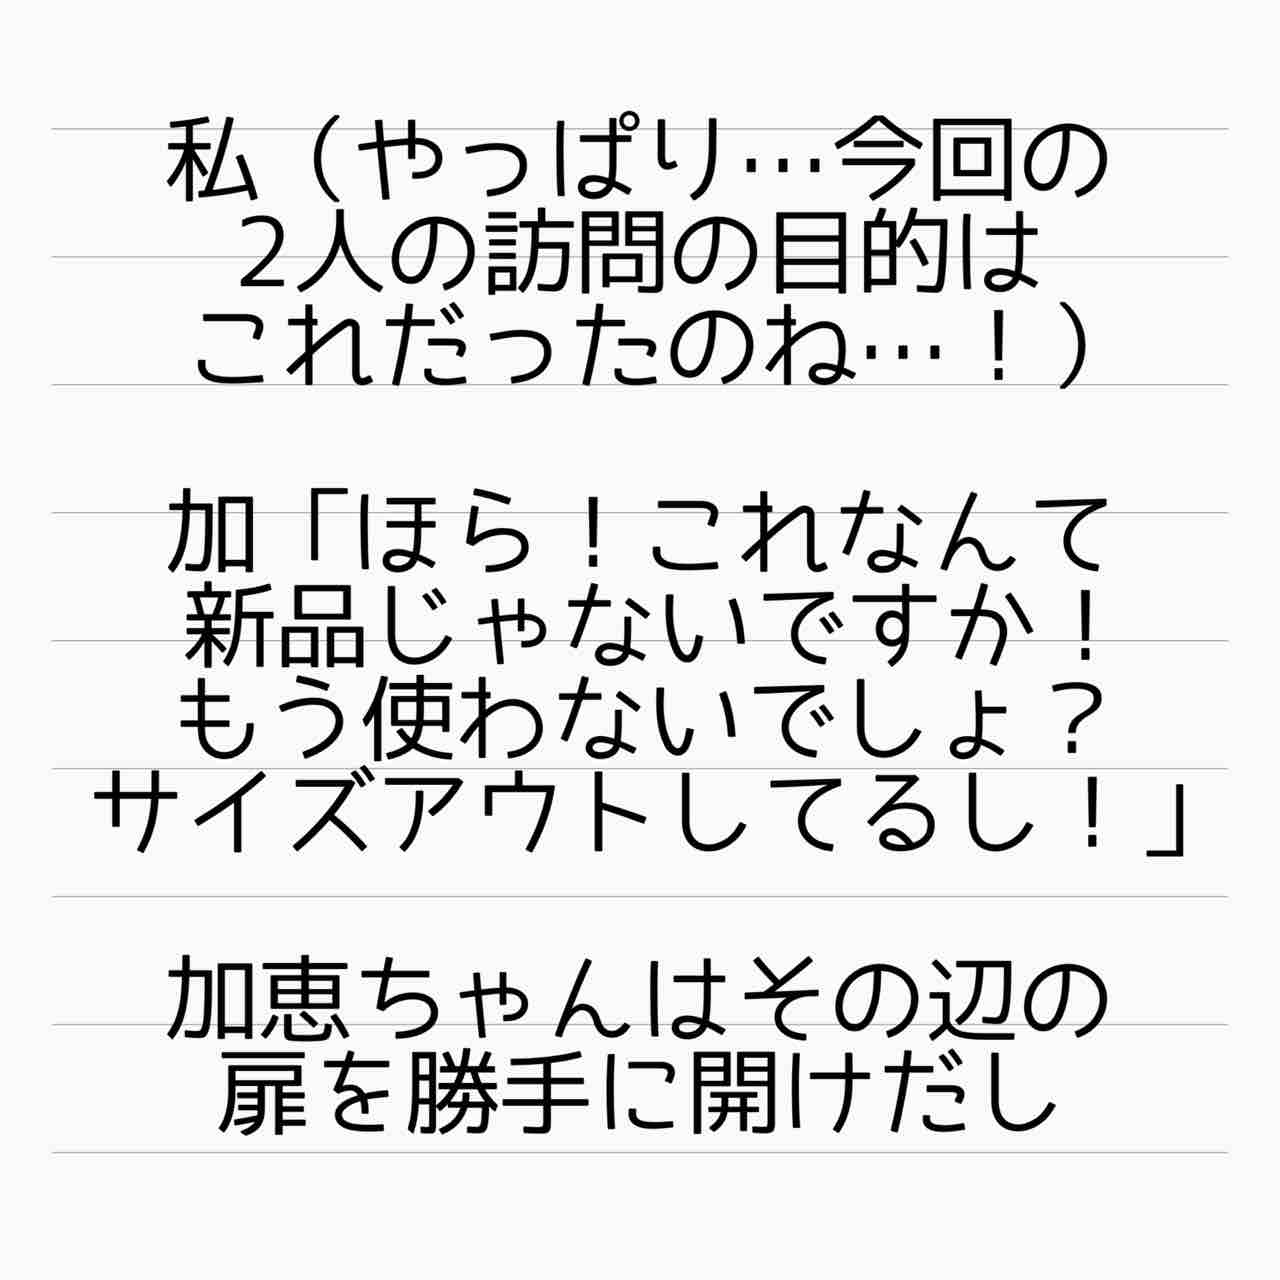 私（やっぱり…今回の
2人の訪問の目的は
これだったのね…！）
加「ほら！これなんて
新品じゃないですか！
もう使わないでしょ？
サイズアウトしてるし！」
加恵ちゃんはその辺の
扉を勝手に開けだし